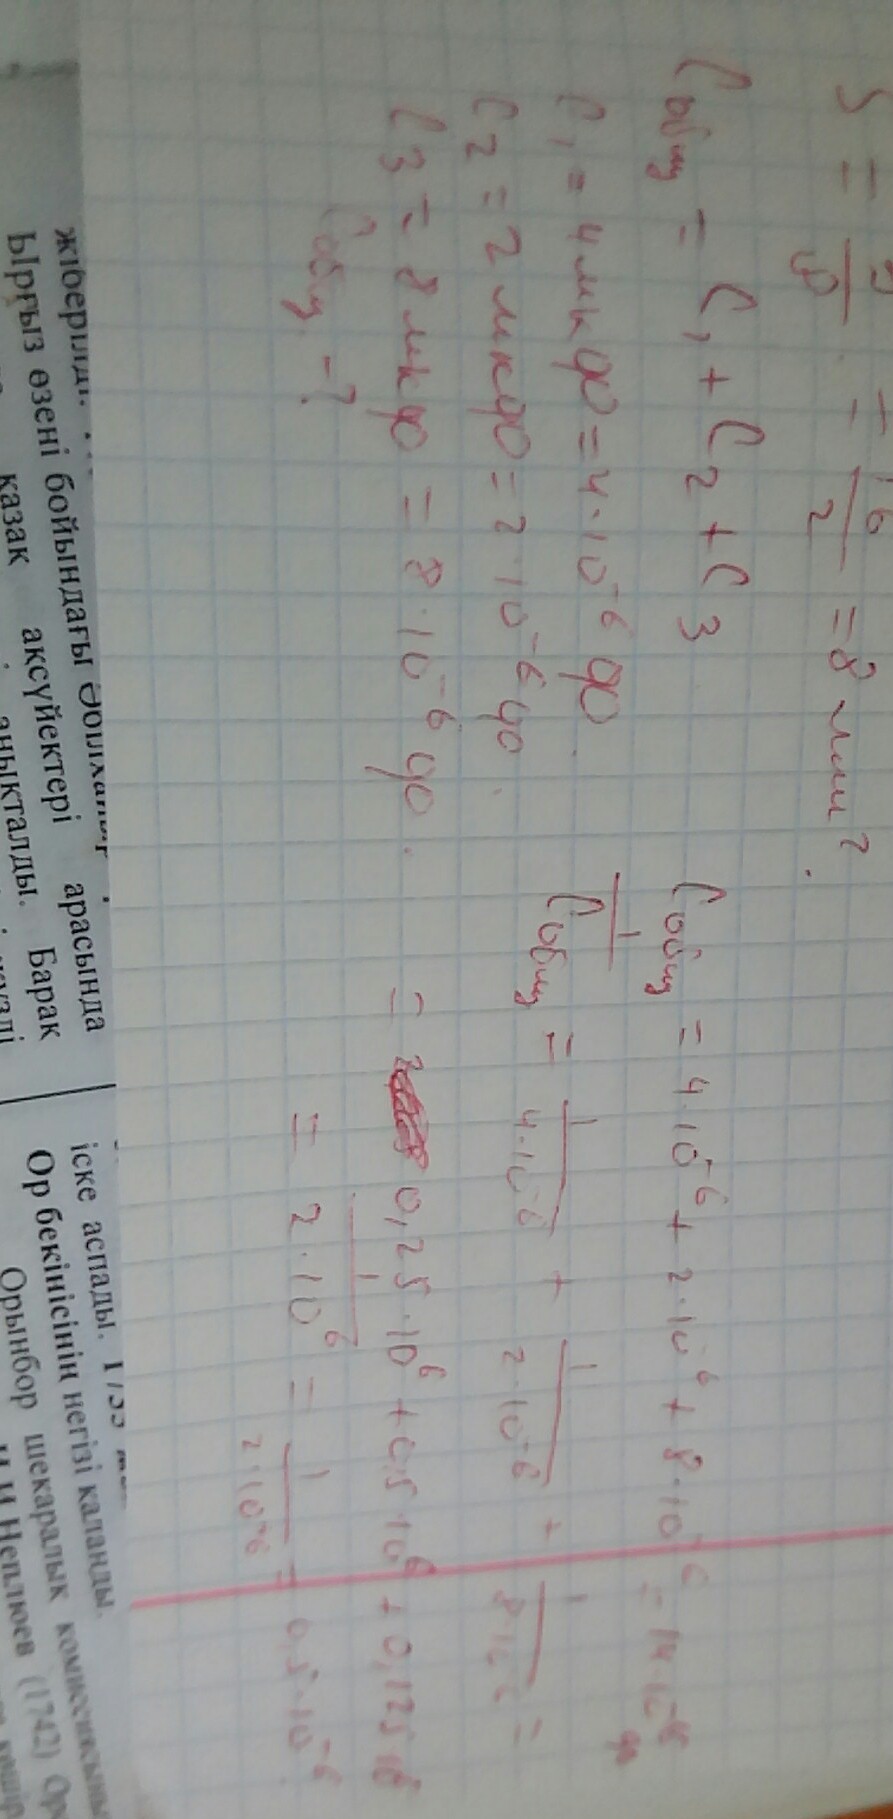 S = = 16/2 = 8 мм².
Cобщ = C₁ + C₂ + C₃
C₁ = 4 мкФ = 4·10⁻⁶ Ф.
C₂ = 2 мкФ = 2·10⁻⁶ Ф.
C₃ = 8 мкФ = 8·10⁻⁶ Ф.
Cобщ. - ?
Cобщ = 4·10⁻⁶ + 2·10⁻⁶ + 8·10⁻⁶ = 14·10⁻⁶ Ф
1/Cобщ = 1/4·10⁻⁶ + 1/2·10⁻⁶ + 1/8·10⁻⁶ =
= 0,25·10⁶ + 0,5·10⁶ + 0,125·10⁶
= 1/2·10⁶ = 1/2·10⁻⁶ = 0,5·10⁻⁶
жіберілді.
Ырғыз өзені бойындағы Әбілхайыр
қазақ ақсүйектері арасында
анықталды. Барақ
іске аспады. 1735
Ор бекінісінің негізі қаланды.
Орынбор шекаралық комиссиясының
И.И Неплюев (1742) Ор